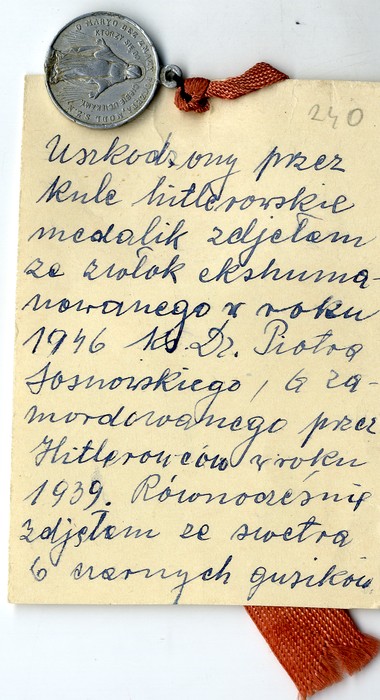 O MARYO BEZ
KTÓRZY
240
Uszkodzony przez
kule hitlerowskie
medalik zdjełam
ze zwłok ekshumo-
wowanego w roku
1946 ks. Dr. Piotra
Sosnowskiego, a za-
mordowanego przez
Hitlerowców w roku
1939. Równocześnie
zdjęłam ze swetra
6 czarnych guzików.